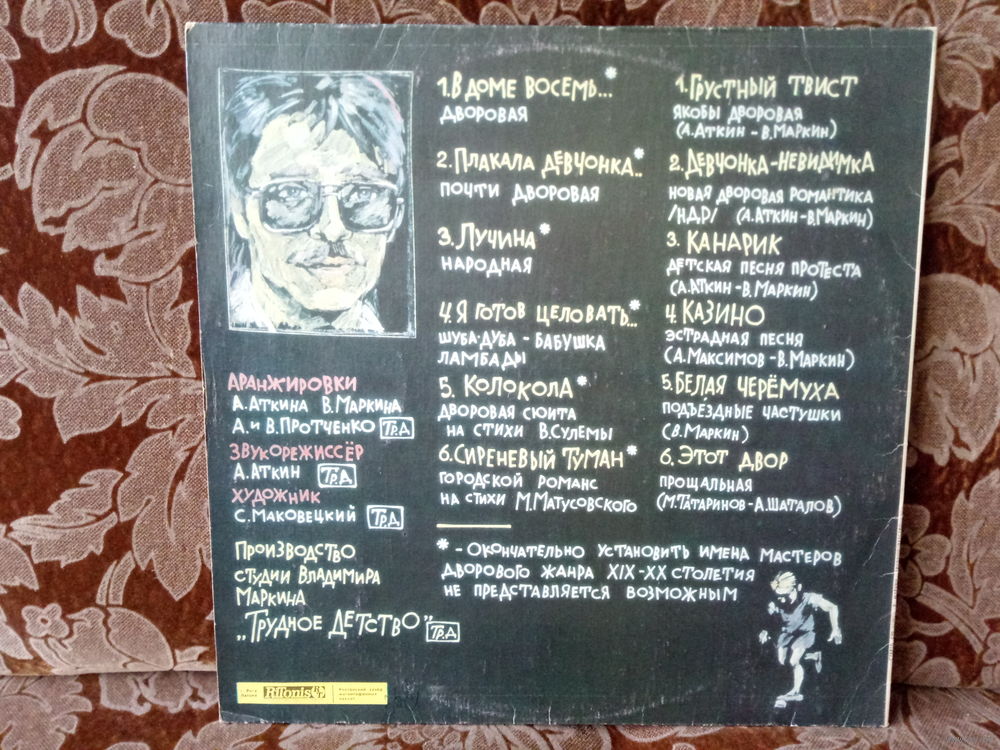 1. В ДОМЕ ВОСЕМЬ...*
ДВОРОВАЯ
2. ПЛАКАЛА ДЕВЧОНКА..*
ПОЧТИ ДВОРОВАЯ
3. ЛУЧИНА*
НАРОДНАЯ
4. Я ГОТОВ ЦЕЛОВАТЬ...*
ШУБА-ДУБА - БАБУШКА
ЛАМБАДЫ
5. КОЛОКОЛА*
ДВОРОВАЯ СЮИТА
НА СТИХИ В.СУЛЕМЫ
6. СИРЕНЕВЫЙ ТУМАН*
ГОРОДСКОЙ РОМАНС
НА СТИХИ М.МАТУСОВСКОГО
1. ГРУСТНЫЙ ТВИСТ
ЯКОБЫ ДВОРОВАЯ
(А.АТКИН - В.МАРКИН)
2. ДЕВЧОНКА-НЕВИДИМКА
НОВАЯ ДВОРОВАЯ РОМАНТИКА
/НДР/ (А.АТКИН - В.МАРКИН)
3. КАНАРИК
ДЕТСКАЯ ПЕСНЯ ПРОТЕСТА
(А.АТКИН - В.МАРКИН)
4. КАЗИНО
ЭСТРАДНАЯ ПЕСНЯ
(А.МАКСИМОВ - В.МАРКИН)
5. БЕЛАЯ ЧЕРЁМУХА
ПОДЪЕЗДНЫЕ ЧАСТУШКИ
(В.МАРКИН)
6. ЭТОТ ДВОР
ПРОЩАЛЬНАЯ
(М.ТАТАРИНОВ - А.ШАТАЛОВ)
* - ОКОНЧАТЕЛЬНО УСТАНОВИТЬ ИМЕНА МАСТЕРОВ
ДВОРОВОГО ЖАНРА XIX-XX СТОЛЕТИЯ
НЕ ПРЕДСТАВЛЯЕТСЯ ВОЗМОЖНЫМ
АРАНЖИРОВКИ
А.АТКИНА В.МАРКИНА
А. И В.ПРОТЧЕНКО Тр.Д
ЗВУКОРЕЖИССЁР
А.АТКИН Тр.Д
ХУДОЖНИК
С.МАКОВЕЦКИЙ Тр.Д
ПРОИЗВОДСТВО
СТУДИИ ВЛАДИМИРА
МАРКИНА
„ТРУДНОЕ ДЕТСТВО" Тр.Д
Ritonis